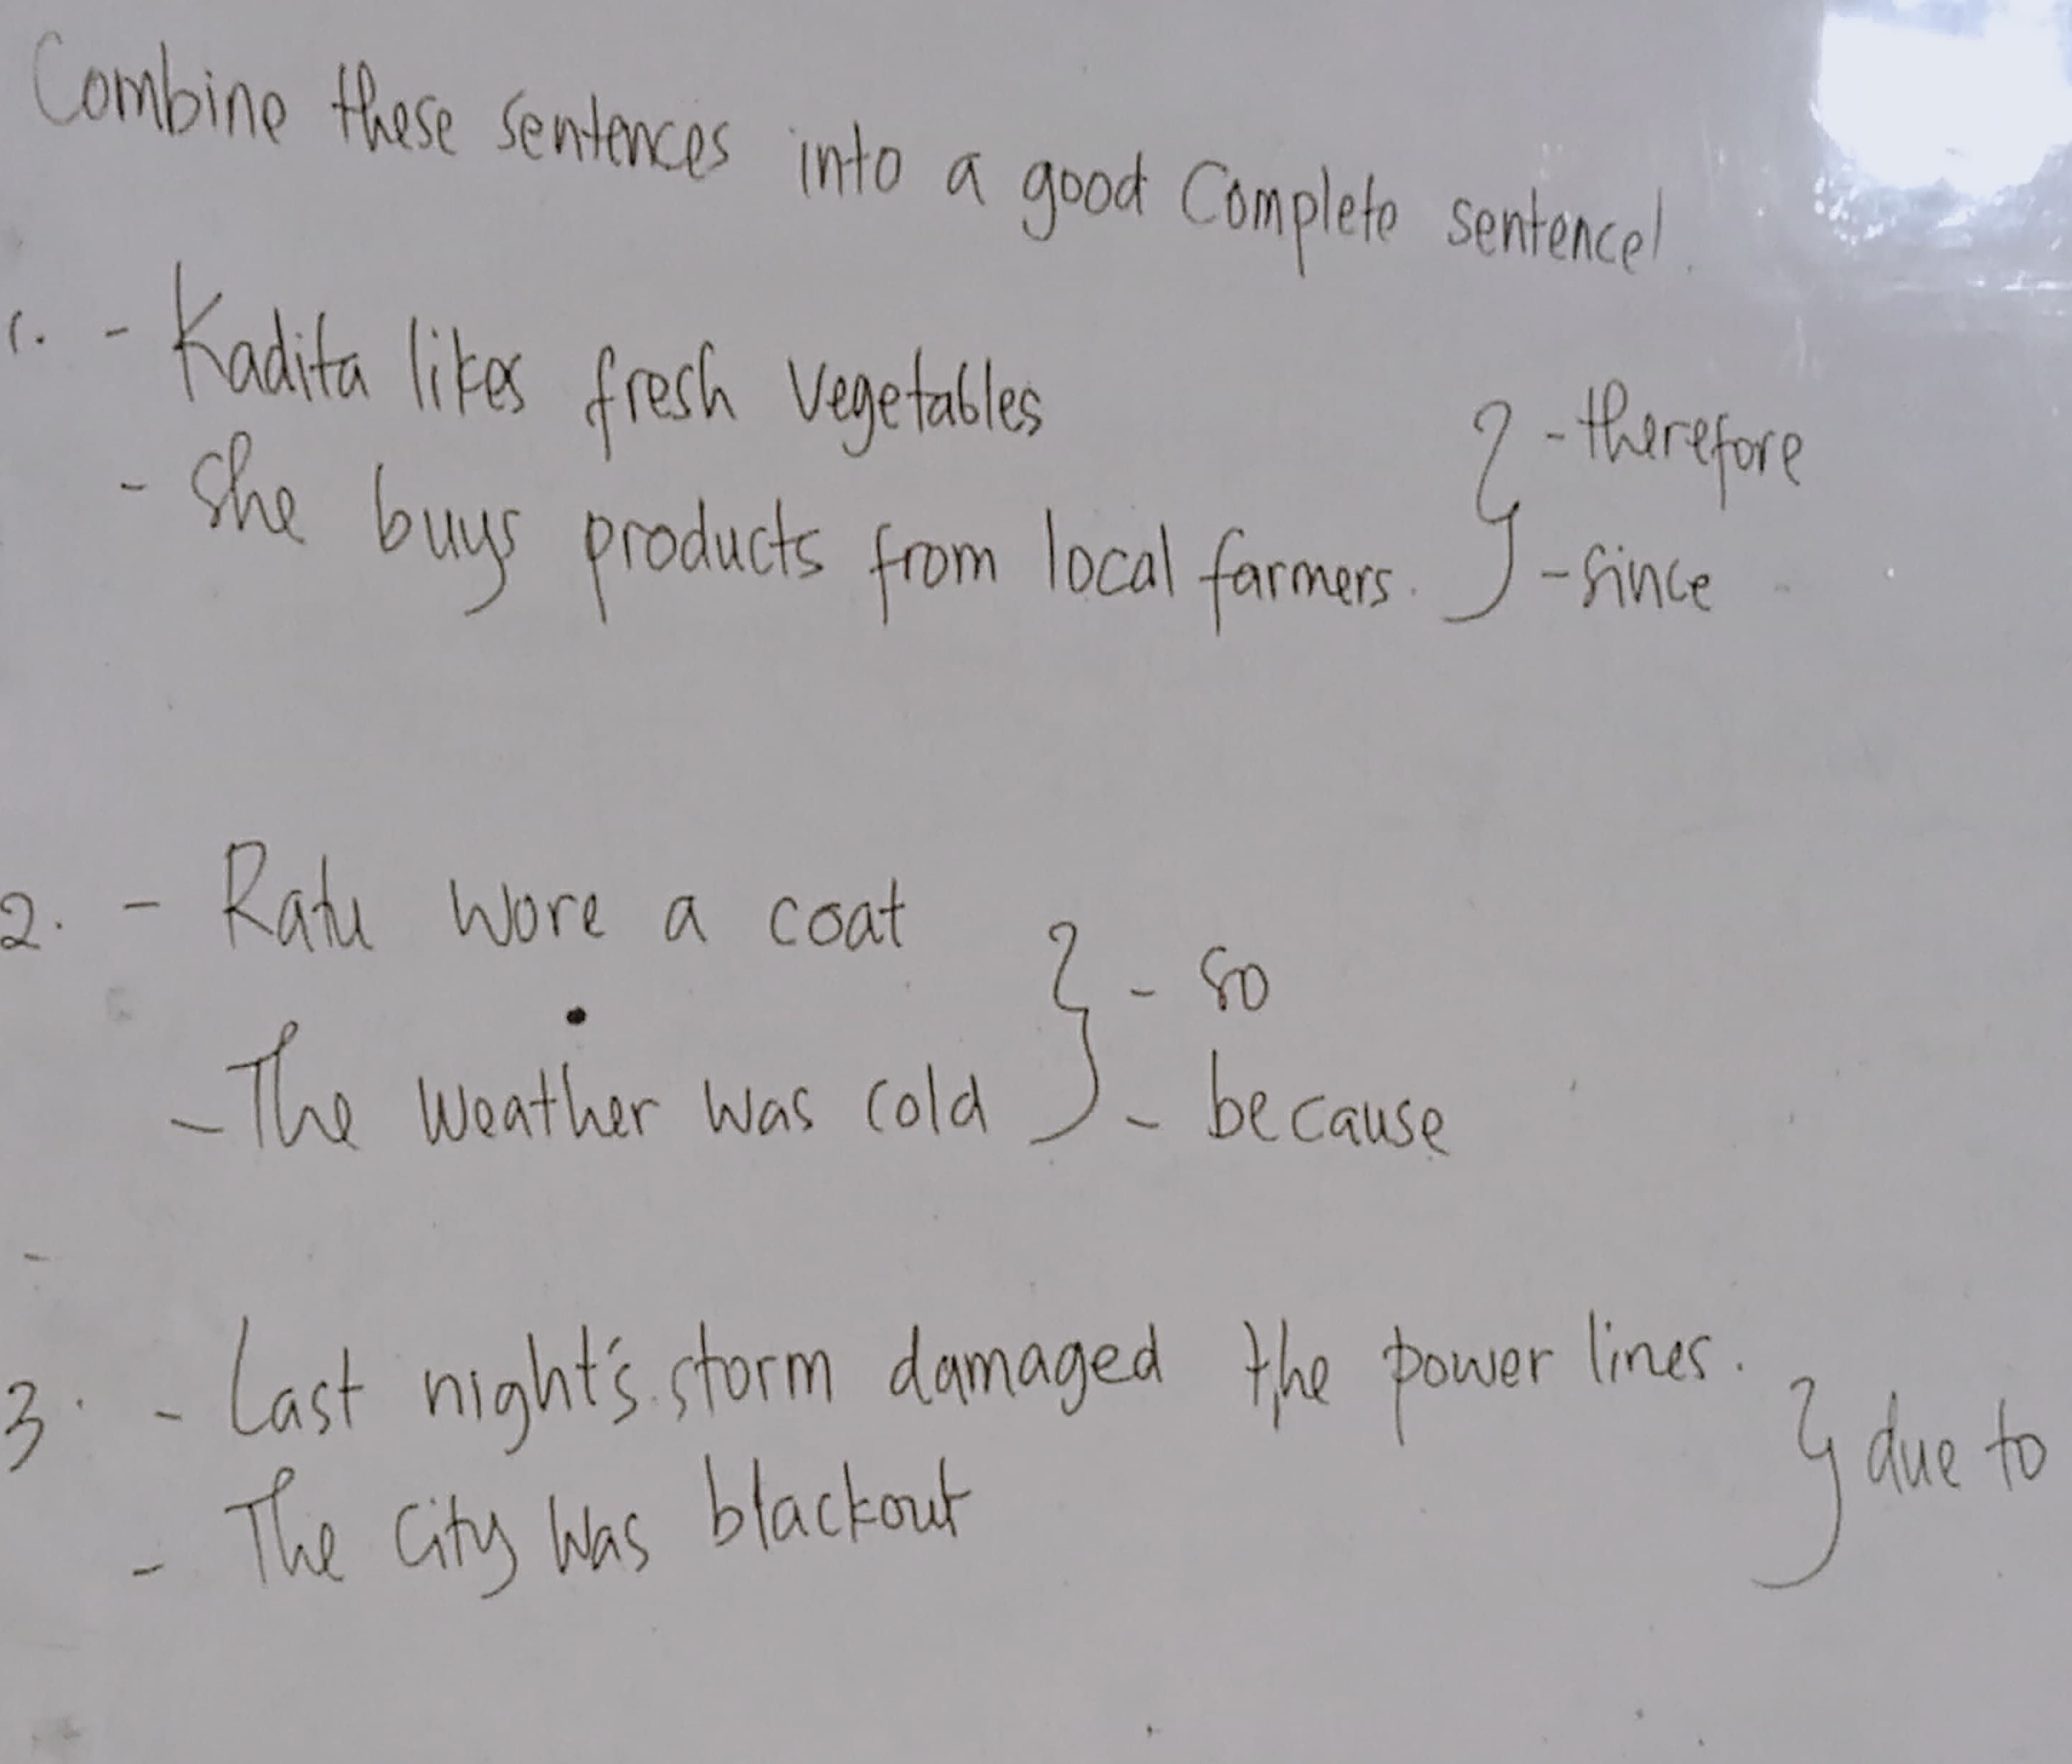 Combine these sentences into a good Complete sentence!
1. - Kadita likes fresh vegetables
- She buys products from local farmers.
- therefore
- since
2. - Ratu wore a coat
- The weather was cold
- so
- because
3. - Last night's storm damaged the power lines.
- The city was blackout
due to